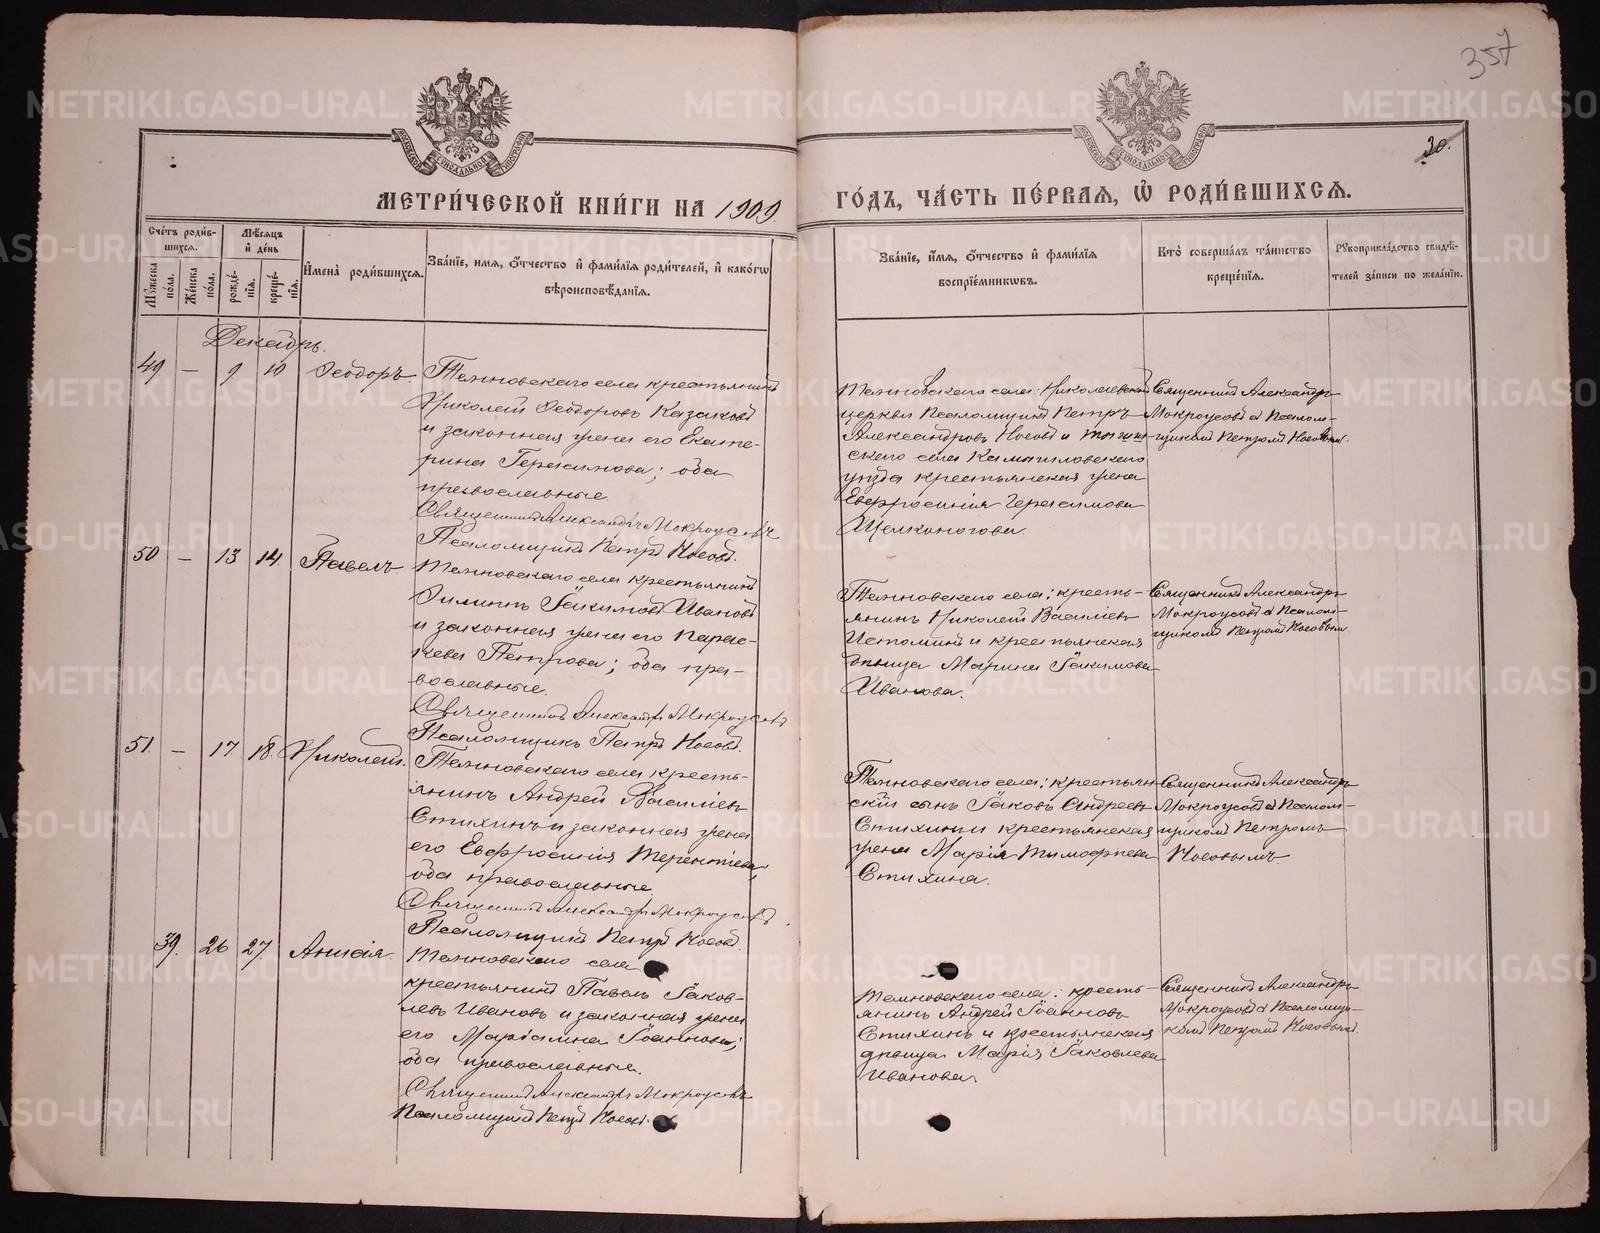 357
30.
МЕТРИ́ЧЕСКОЙ КНИ́ГИ НА 1909
ГО́ДЪ, ЧА́СТЬ ПЕ́РВАЯ, Ѿ РОДИ́ВШИХСЯ.
Сче́тъ роди́в-
шихся.
Мѣ́сяцъ
и҆ де́нь
Му́жеска по́ла.
Же́нска по́ла.
рожде́-
нїя.
креще́-
нїя.
И҆мена̀ роди́вшихся.
Зва́нїе, и҆мя, о҆́тчество и҆ фами́лїя роди́телей, и҆ како́гѡ
вѣроисповѣ́данїя.
Зва́нїе, и҆́мя, о҆́тчество и҆ фами́лїя
воспрїе́мникѡвъ.
Кто̀ соверша́лъ та́инство
креще́нїя.
Рꙋкоприкла́дство свидѣ́-
телей за́писи по жела́нїю.
Декабрь.
49 — 9 10 Ѳеодоръ.
Темновскаго села крестьянинъ
Николай Ѳеодоровъ Казаковъ
и законная жена его Екате-
рина Герасимова; оба
православные.
Священникъ Александръ Мокроусовъ
Псаломщикъ Петръ Носовъ.
Темновскаго села: Николаевской
церкви Псаломщикъ Петръ
Александровъ Носовъ и
скаго села Камышловскаго
уѣзда крестьянская жена
Евфросинія Герасимова
Щелконогова.
Священникъ Александръ
Мокроусовъ съ Псалом-
щикомъ Петромъ Носовымъ.
50 — 13 14. Павелъ.
Темновскаго села крестьянинъ
Филиппъ Іакимовъ Ивановъ
и законная жена его Парас-
кева Петрова; оба пра-
вославные.
Священникъ Александръ Мокроусовъ
Псаломщикъ Петръ Носовъ.
Темновскаго села: кресть-
янинъ Николай Василіевъ
Истоминъ и крестьянская
дѣвица Марина Іакимова
Иванова.
Священникъ Александръ
Мокроусовъ съ Псалом-
щикомъ Петромъ Носовымъ
51. — 17. 18. Николай.
Темновскаго села кресть-
янинъ Андрей Василіевъ
Стихинъ и законная жена
его Евфросинія Терентіева,
оба православные.
Священникъ Александръ Мокроусовъ
Псаломщикъ Петръ Носовъ.
Темновскаго села: крестьян-
скій сынъ Іаковъ Андреевъ
Стихинъ и крестьянская
жена Марія Тимофеева
Стихина.
Священникъ Александръ
Мокроусовъ съ Псалом-
щикомъ Петромъ
Носовымъ.
39. 26 27 Анисія.
Темновскаго села
крестьянинъ Павелъ Іаков-
левъ Ивановъ и законная жена
его Маріамна Іоаннова;
оба православные.
Священникъ Александръ Мокроусовъ
Псаломщикъ Петръ Носовъ.
Темновскаго села: кресть-
янинъ Андрей Іоанновъ
Стихинъ и крестьянская
дѣвица Марія Іаковлева
Иванова.
Священникъ Александръ
Мокроусовъ съ Псаломщи-
комъ Петромъ Носовымъ.
METRIKI.GASO-URAL.RU